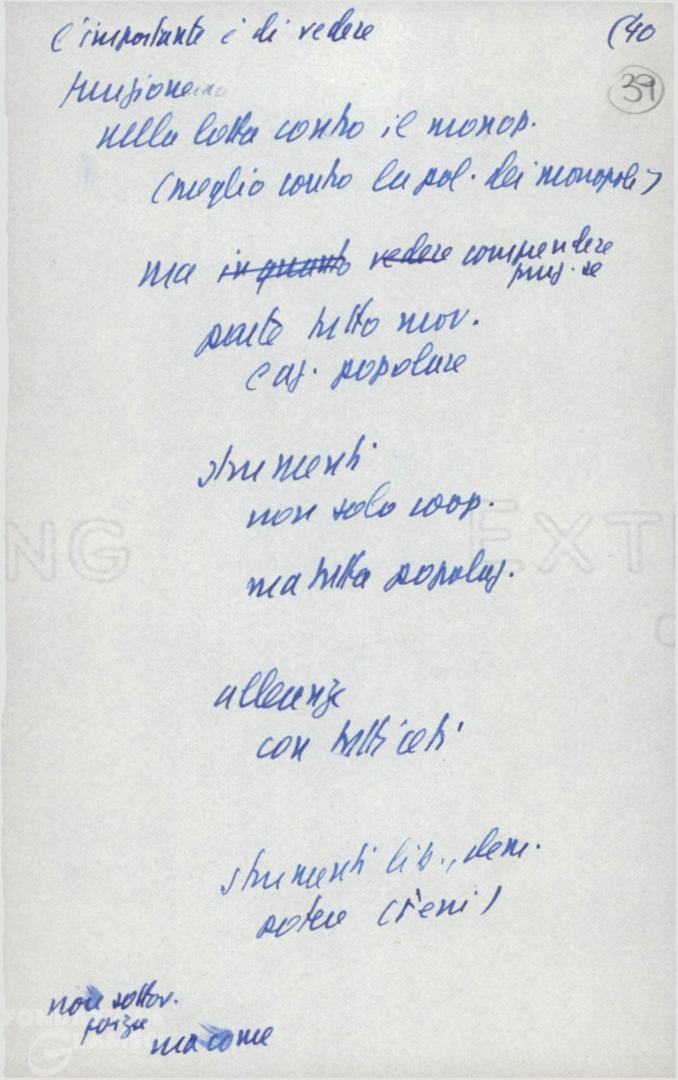 l'importante è di vedere (40
funzione 39
nella lotta contro il monop.
(meglio contro la pol. dei monopoli)
ma in quanto vedere comprendere
parte tutto mov.
popolare
strumenti
non solo coop.
ma tutta popolaz.
alleanze
con tutti ceti
strumenti lib., dem.
potere
non sottov.
forze
ma come
NG EXT